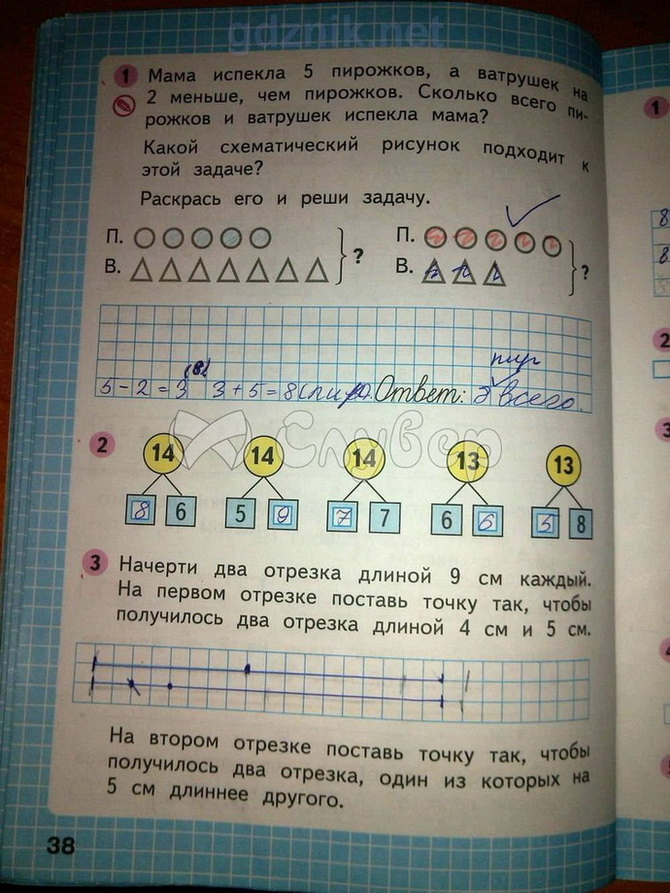 gdznik.net
1 Мама испекла 5 пирожков, а ватрушек на
2 меньше, чем пирожков. Сколько всего пи-
рожков и ватрушек испекла мама?
Какой схематический рисунок подходит к
этой задаче?
Раскрась его и реши задачу.
П. } ? П. } ?
В. В.
(в)
пир
5-2=3 3+5=8(пир). Ответ: всего.
Слувер
2 14 14 14 13 13
8 6 5 9 7 7 6 6 5 8
3 Начерти два отрезка длиной 9 см каждый.
На первом отрезке поставь точку так, чтобы
получилось два отрезка длиной 4 см и 5 см.
На втором отрезке поставь точку так, чтобы
получилось два отрезка, один из которых на
5 см длиннее другого.
38
1
8
8
2
3